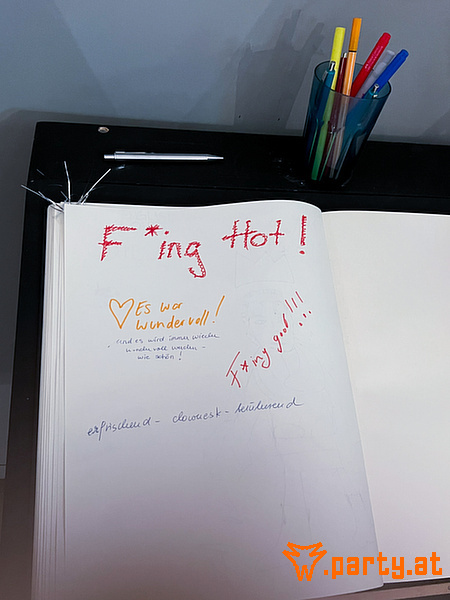 F*ing Hot!
Es war
wundervoll!
und es wird immer wieder
wundervoll werden -
wie schön!
F*ing good!!!
erfrischend - clownesk - berührend
W.party.at